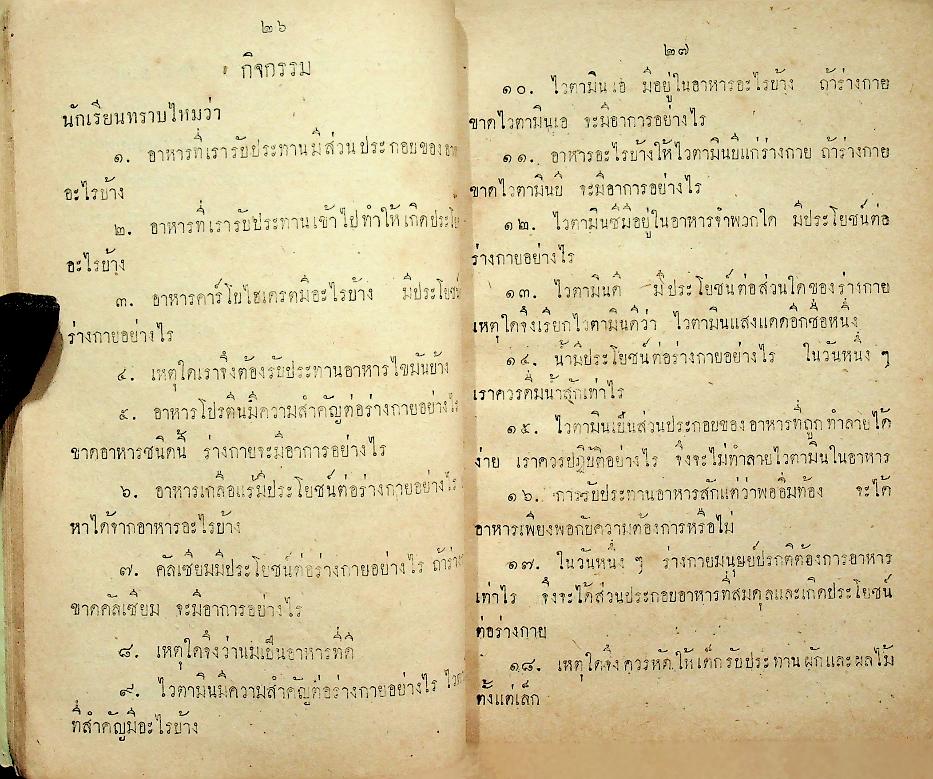 ๒๖
กิจกรรม
นักเรียนทราบไหมว่า
๑. อาหารที่เรารับประทานมีส่วนประกอบของ
อะไรบ้าง
๒. อาหารที่เรารับประทานเข้าไปทำให้เกิด
อะไรบ้าง
๓. อาหารคาร์โบไฮเดรตมีอะไรบ้าง มีประโยชน์
ร่างกายอย่างไร
๔. เหตุใดเราจึงต้องรับประทานอาหารไขมันบ้าง
๕. อาหารโปรตีนมีความสำคัญต่อร่างกายอย่างไร
ขาดอาหารชนิดนี้ ร่างกายจะมีอาการอย่างไร
๖. อาหารเกลือแร่มีประโยชน์ต่อร่างกายอย่างไร
หาได้จากอาหารอะไรบ้าง
๗. คัลเซียมมีประโยชน์ต่อร่างกายอย่างไร
ขาดคัลเซียม จะมีอาการอย่างไร
๘. เหตุใดจึงว่านมเป็นอาหารที่ดี
๙. ไวตามินมีความสำคัญต่อร่างกายอย่างไร
ที่สำคัญมีอะไรบ้าง
๒๗
๑๐. ไวตามินเอ มีอยู่ในอาหารอะไรบ้าง ถ้าร่างกาย
ขาดไวตามินเอ จะมีอาการอย่างไร
๑๑. อาหารอะไรบ้างให้ไวตามินบีแก่ร่างกาย ถ้าร่างกาย
ขาดไวตามินบี จะมีอาการอย่างไร
๑๒. ไวตามินซีมีอยู่ในอาหารจำพวกใด มีประโยชน์ต่อ
ร่างกายอย่างไร
๑๓. ไวตามินดี มีประโยชน์ต่อส่วนใดของร่างกาย
เหตุใดจึงเรียกไวตามินดีว่า ไวตามินแสงแดดอีกชื่อหนึ่ง
๑๔. น้ำมีประโยชน์ต่อร่างกายอย่างไร ในวันหนึ่ง ๆ
เราควรดื่มน้ำสักเท่าไร
๑๕. ไวตามินเป็นส่วนประกอบของอาหารที่ถูกทำลายได้
ง่าย เราควรปฏิบัติอย่างไร จึงจะไม่ทำลายไวตามินในอาหาร
๑๖. การรับประทานอาหารสักแต่ว่าพออิ่มท้อง จะได้
อาหารเพียงพอกับความต้องการหรือไม่
๑๗. ในวันหนึ่ง ๆ ร่างกายมนุษย์ปรกติต้องการอาหาร
เท่าไร จึงจะได้ส่วนประกอบอาหารที่สมดุลและเกิดประโยชน์
ต่อร่างกาย
๑๘. เหตุใดจึงควรหัดให้เด็กรับประทานผักและผลไม้
ตั้งแต่เล็ก